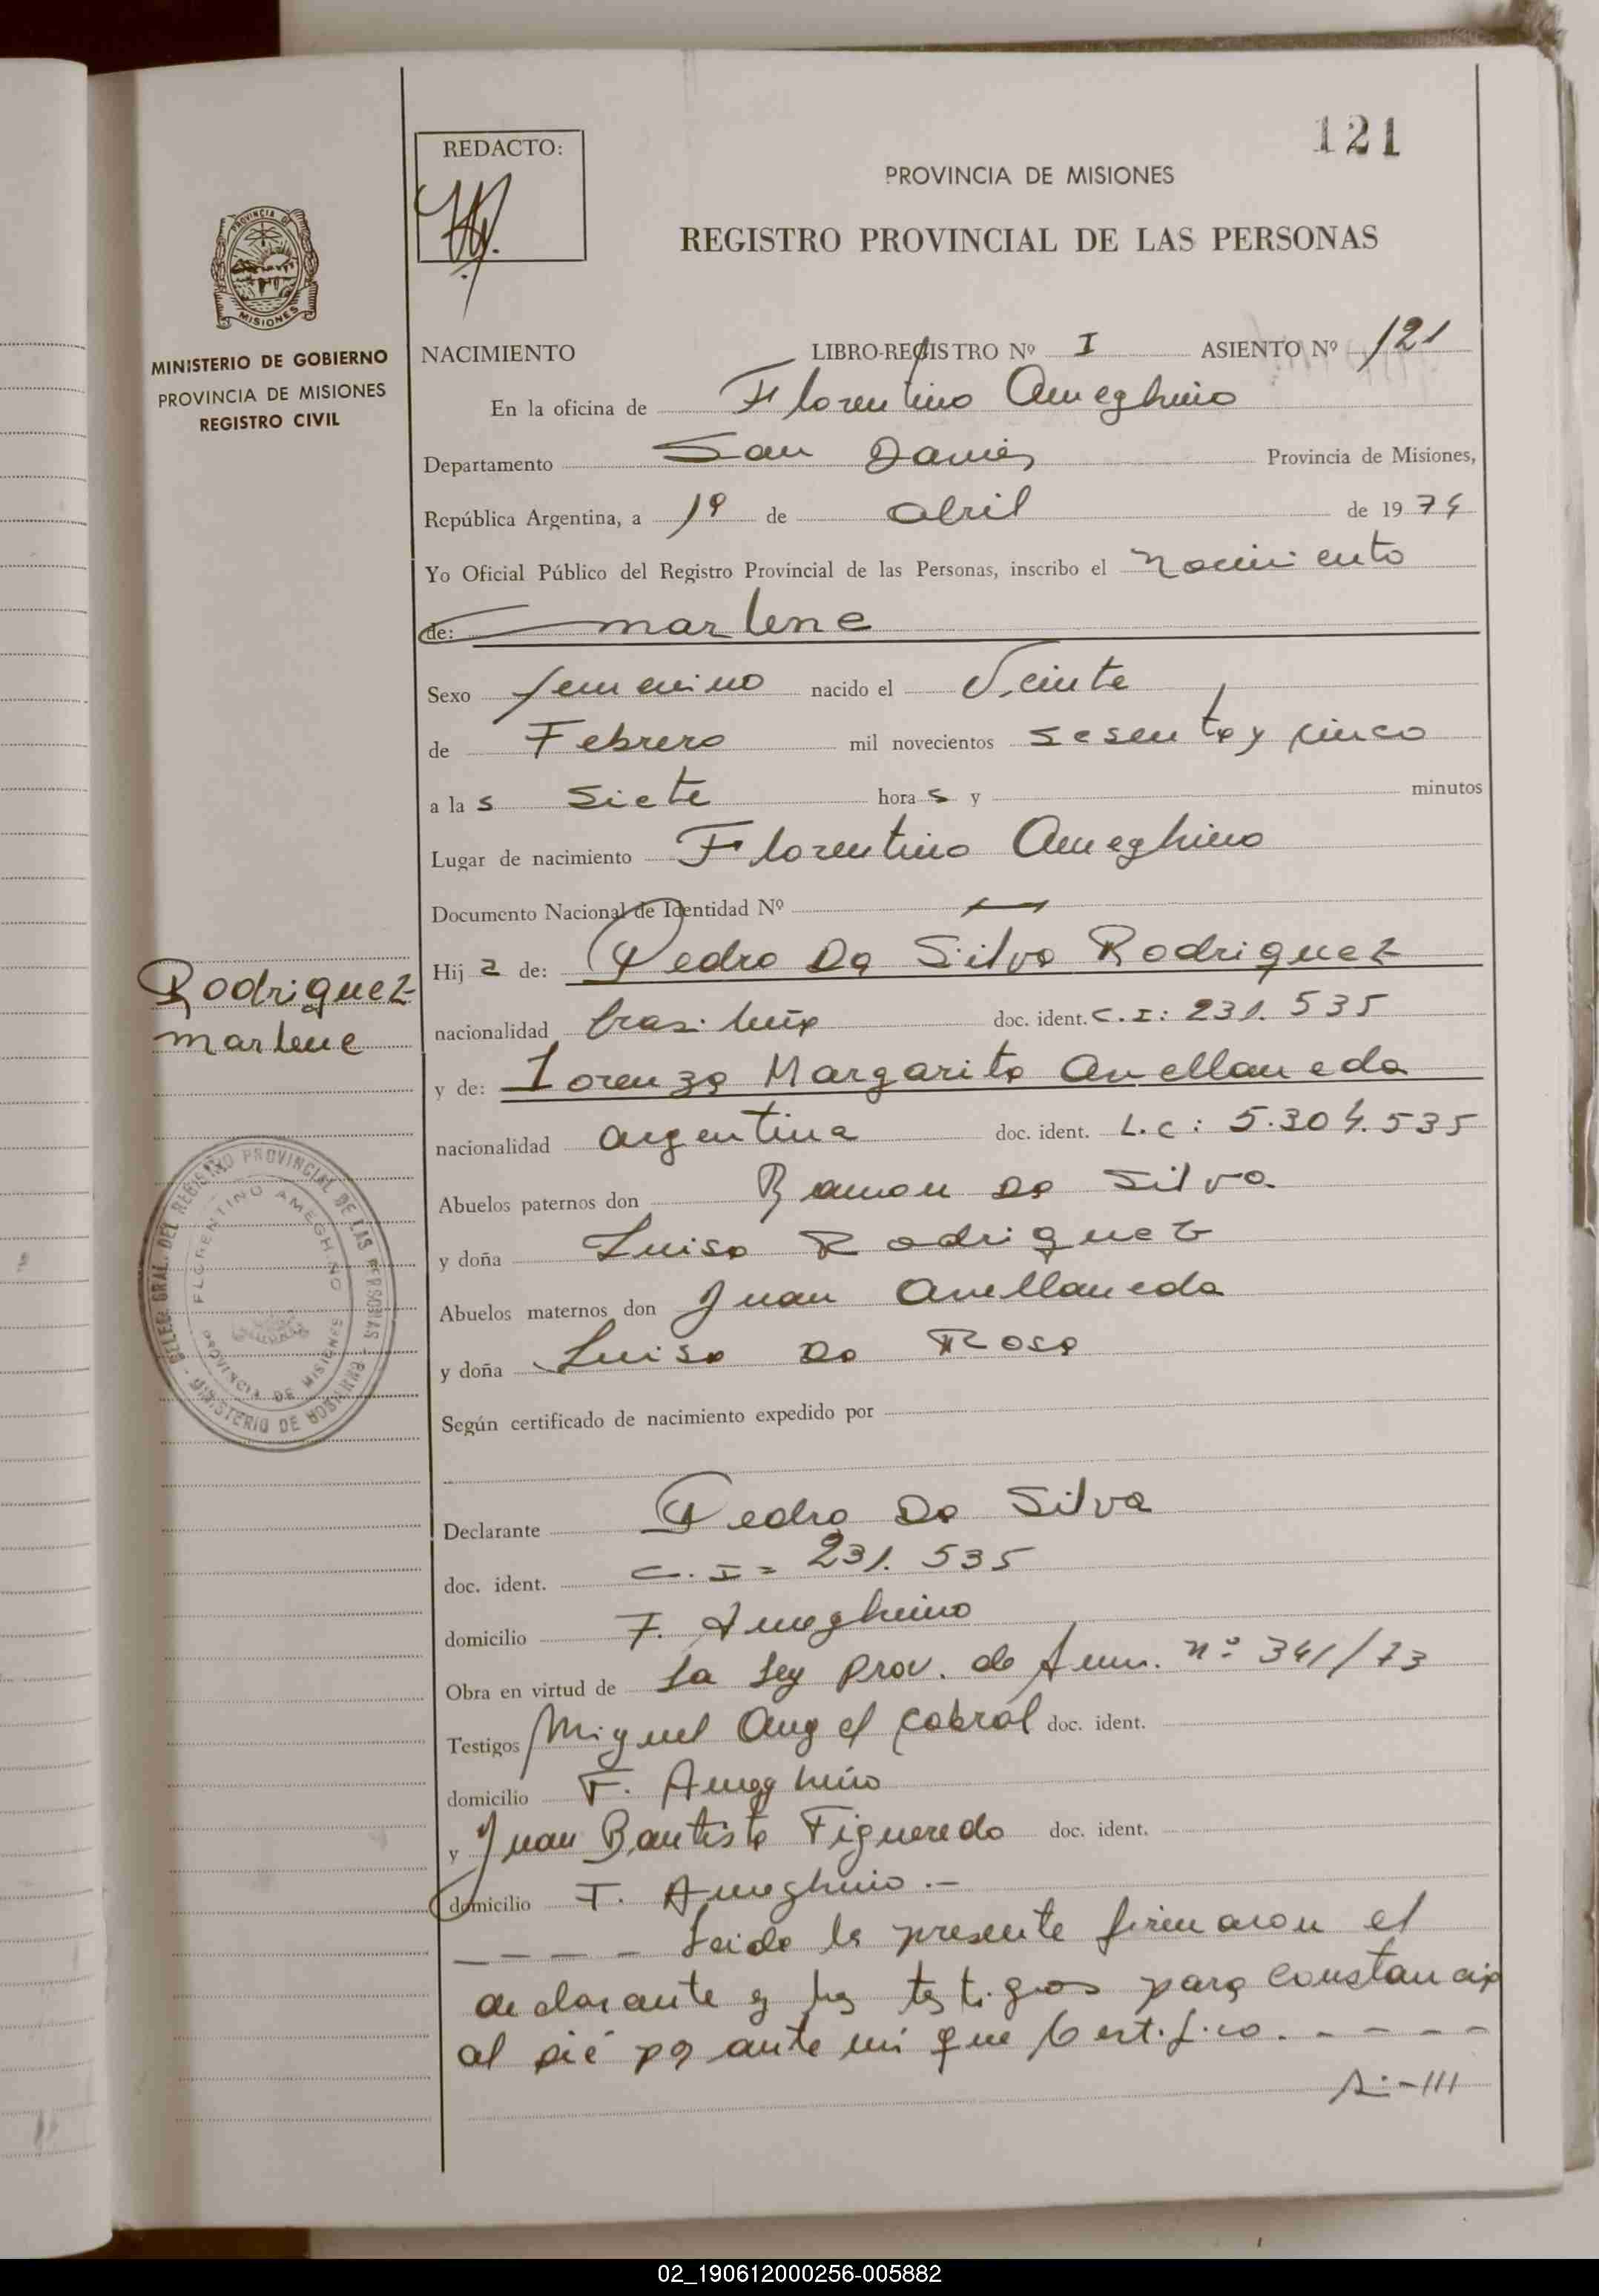 121
REDACTO:
PROVINCIA DE MISIONES
REGISTRO PROVINCIAL DE LAS PERSONAS
PROVINCIA DE
MISIONES
MINISTERIO DE GOBIERNO
PROVINCIA DE MISIONES
REGISTRO CIVIL
NACIMIENTO LIBRO-REGISTRO Nº I ASIENTO Nº 121
En la oficina de Florentino Ameghino
Departamento San Javier Provincia de Misiones,
República Argentina, a 1º de abril de 1974
Yo Oficial Público del Registro Provincial de las Personas, inscribo el nacimiento
de: marlene
Sexo femenino nacido el Veinte
de Febrero mil novecientos sesenta y cinco
a las siete horas y minutos
Lugar de nacimiento Florentino Ameghino
Documento Nacional de Identidad Nº —
Hija de: Pedro Da Silva Rodriguez
Rodriguez
marlene
nacionalidad brasileña doc. ident. C.I: 231.535
y de: Lorenza Margarita Avellaneda
nacionalidad argentina doc. ident. L.C: 5.304.535
Abuelos paternos don Ramon Da Silva
y doña Luisa Rodriguez
Abuelos maternos don Juan Avellaneda
y doña Luisa Da Rosa
DELEG. GRAL. DEL REGISTRO PROVINCIAL DE LAS PERSONAS - MINISTERIO DE GOBIERNO
FLORENTINO AMEGHINO
PROVINCIA DE MISIONES
Según certificado de nacimiento expedido por
Declarante Pedro Da Silva
doc. ident. C.I= 231.535
domicilio F. Ameghino
Obra en virtud de La Ley Prov. de Amn. nº 341/73
Testigos Miguel Angel Cabral doc. ident.
domicilio F. Ameghino
y Juan Bautista Figueredo doc. ident.
domicilio F. Ameghino.-
---- Leida la presente firmaron el
declarante y los testigos para constancia
al pié por ante mi que Certifico. - - - -
02_190612000256-005882